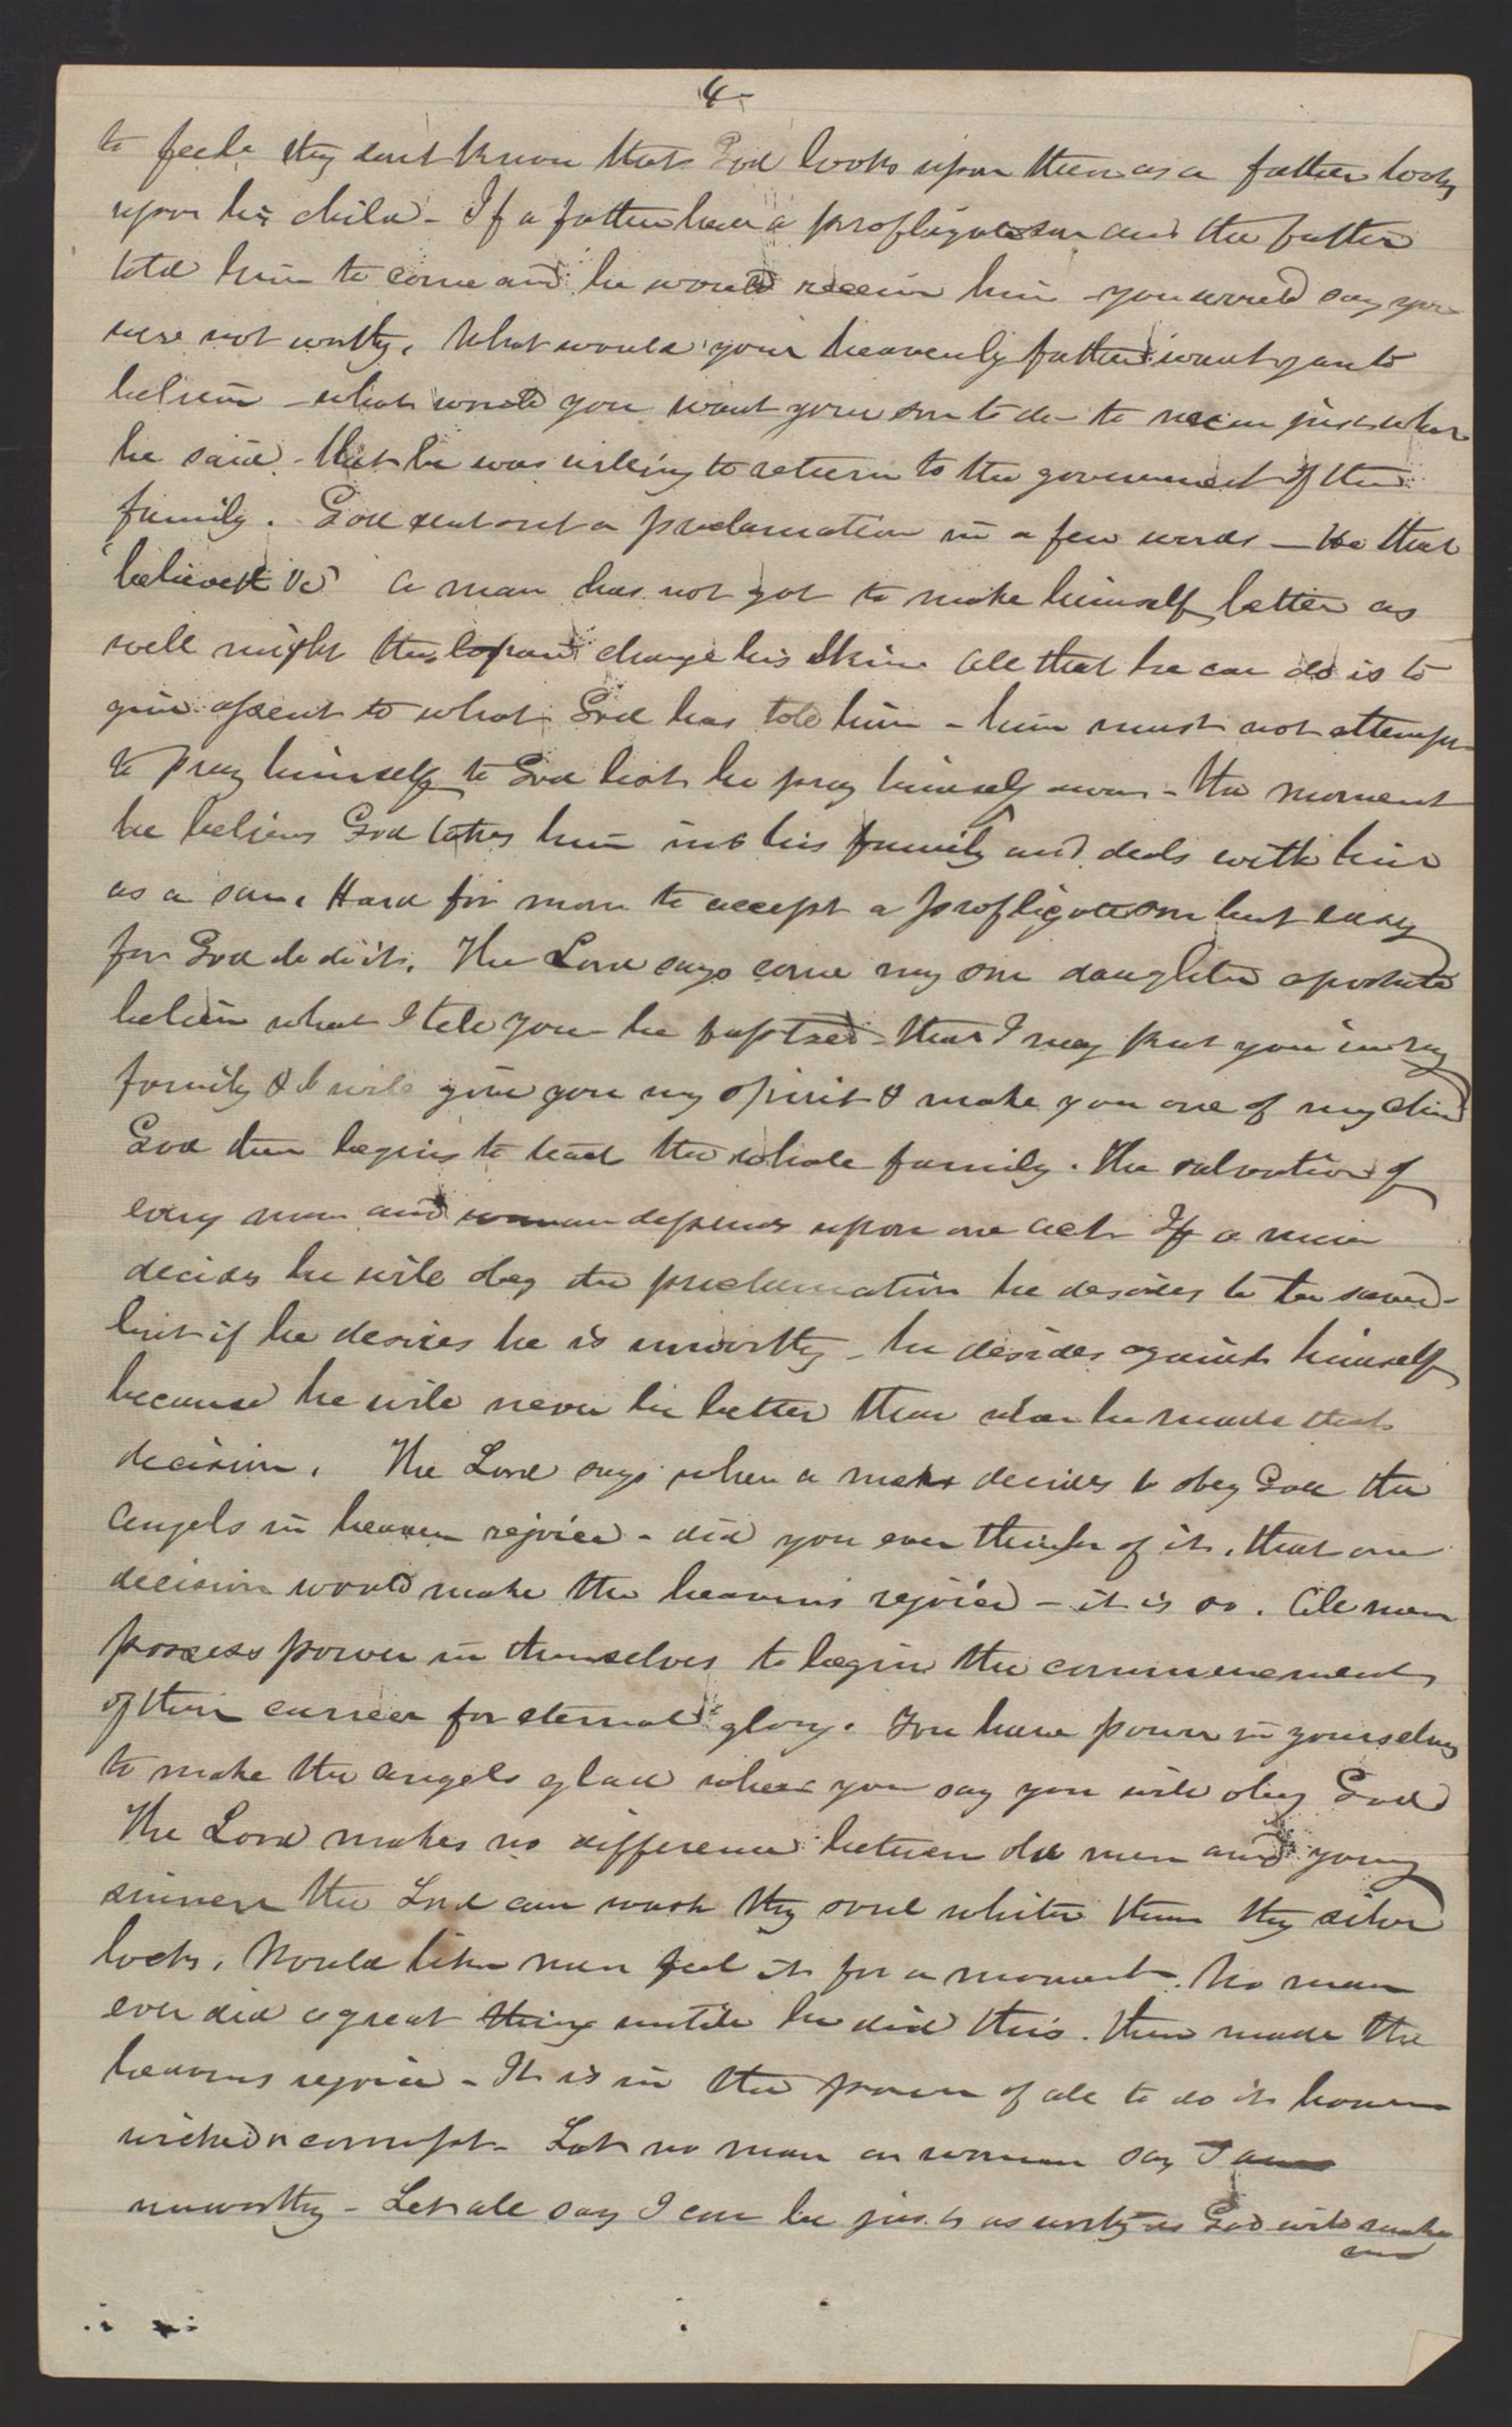 4-
to feele they dont know that God looks upon them as a father looks
upon his child - If a father have a profligate son and the father
told him to come and he would receive him - you would say you
were not worthy. What would your heavenly father want you to
believe - what would you want your son to do - to receive just what
he said - that he was willing to return to the government of the
family. God sent out a proclamation in a few words - He that
"believeth &c" a man has not got to make himself better as
well might the lepard change his skin All that he can do is to
give assent to what God has told him - him must not attempt
to pray himself to God lest he pray himself away - the moment
he believes God takes him into his family and deals with him
as a son. Hard for man to accept a profligate son but easy
for God to do it. The Lord says come my son daughter apostate
believe what I tell you be baptzed that I may put you in my
family & I will give you my spirit & make you one of my
God then begins to lead the whole family. The salvation of
every man and woman depends upon one act If a man
decides he will obey the proclamation he desires to be saved -
but if he desires he is unworthy - he desides against himself
because he will never be better than when he made that
decision. The Lord says when a man decides to obey God the
angels in heaven rejoice - did you ever think of it, that one
decision would make the heavens rejoice - it is so. All men
possess power in themselves to begin the commencement
of their carreer for eternal glory. You have power in yourselves
to make the angels glad when you say you will obey God
The Lord makes no difference between old men and young
sinner the Lord can wash thy soul whiter than thy silver
locks. Would like men feel it for a moment. No man
ever did a great thing untill he did this. then made the
heavens rejoice - It is in the power of all to do it however
wicked or corrupt - Let no man or woman say I am
unworthy - Let all say I can be just as worthy as God will make
me